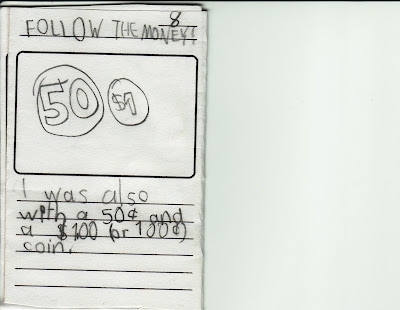 8
FOLLOW THE MONEY!
50 $1
I was also
with a 50¢ and
a $1.00 (or 100¢)
coin.